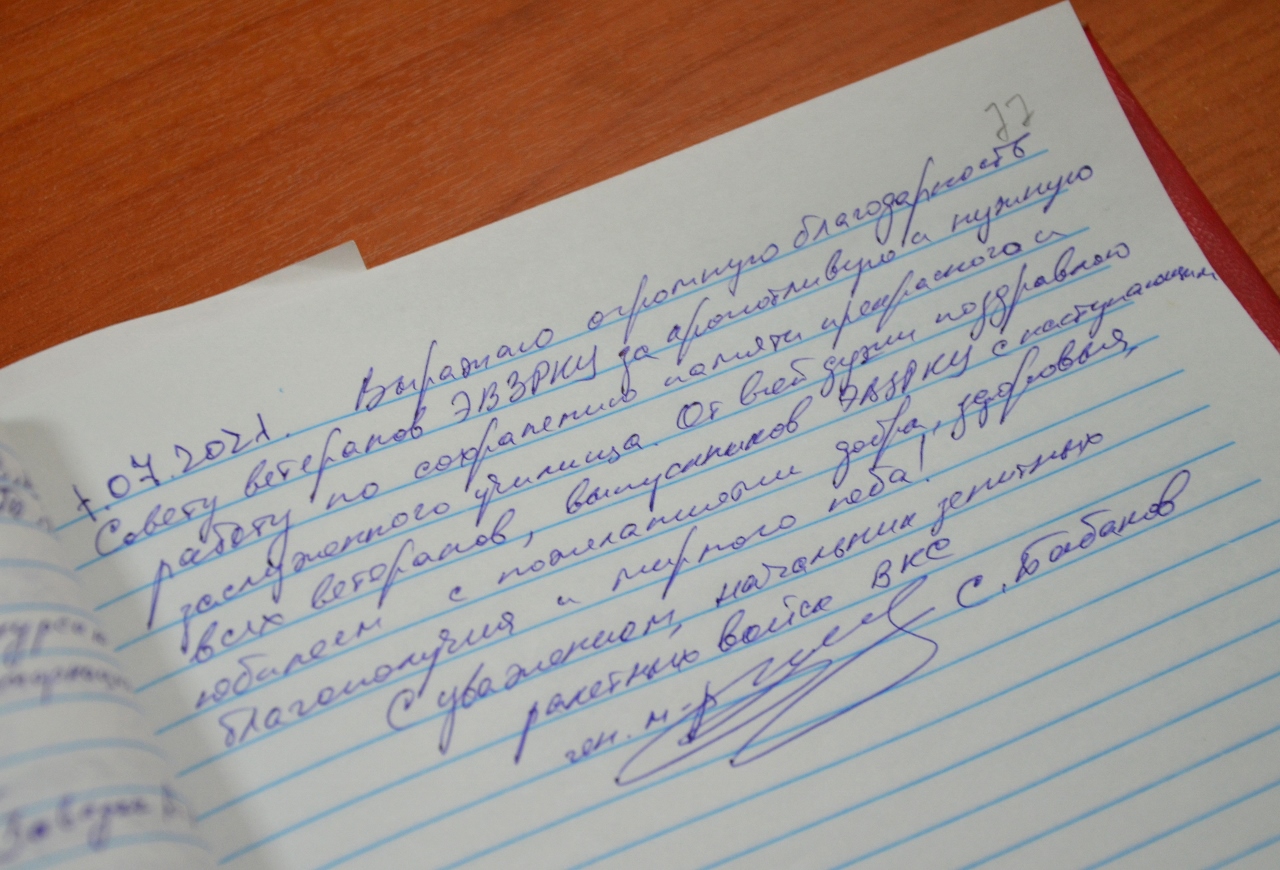 77
1.07.2021. Выражаю огромную благодарность
Совету ветеранов ЭВЗРКУ за кропотливую и нужную
работу по сохранению памяти прекрасного и
заслуженного училища. От всей души поздравляю
всех ветеранов, выпускников ЭВЗРКУ с наступающим
юбилеем с пожеланиями добра, здоровья,
благополучия и мирного неба!
С уважением, начальник зенитных
ракетных войск ВКС
ген. м-р С. Бабаков